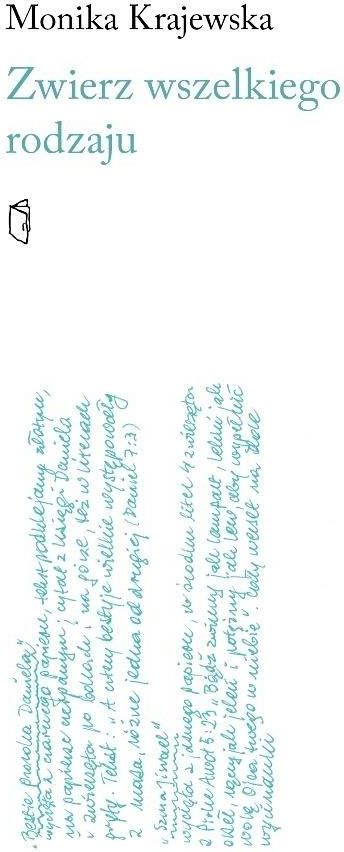 Monika Krajewska
Zwierz wszelkiego
rodzaju
"Bestie proroka Daniela"
wycięta z czarnego papieru, tekst podklejany złotym,
na papierze czerpanym; cytat z Księgi Daniela
i zwierzęta po bokach, na górze, też w literach
Tekst: "A cztery bestyje wielkie występowały
z morza, różne jedna od drugiej (Daniel 7:3)
"Szma Jisrael"
wycięta z jednego papieru, w środku liter 4 zwierzęta
z Pirke Awot 5:23 "Bądź zwinny jak lampart, lekki jak
orzeł, rączy jak jeleń i potężny jak lew, aby wypełnić
wolę Ojca twego w niebie".
wycinanki